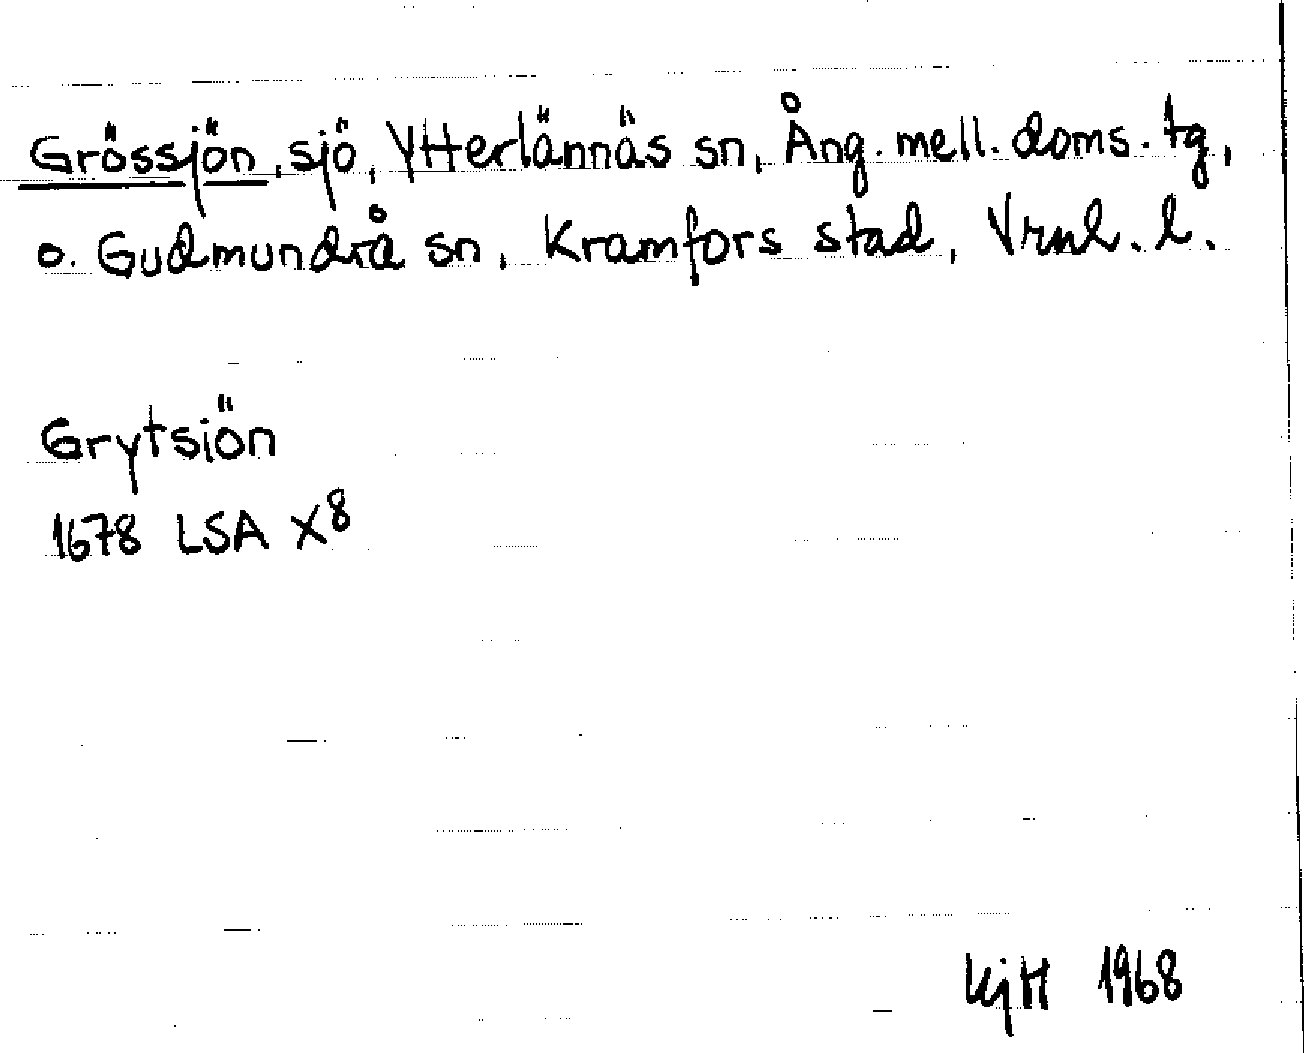 Grössjön, sjö, Ytterlännäs sn, Ång. mell. doms. tg,
o. Gudmundrå sn, Kramfors stad, Vrnl. l.
Grytsiön
1678 LSA X8
KjH 1968